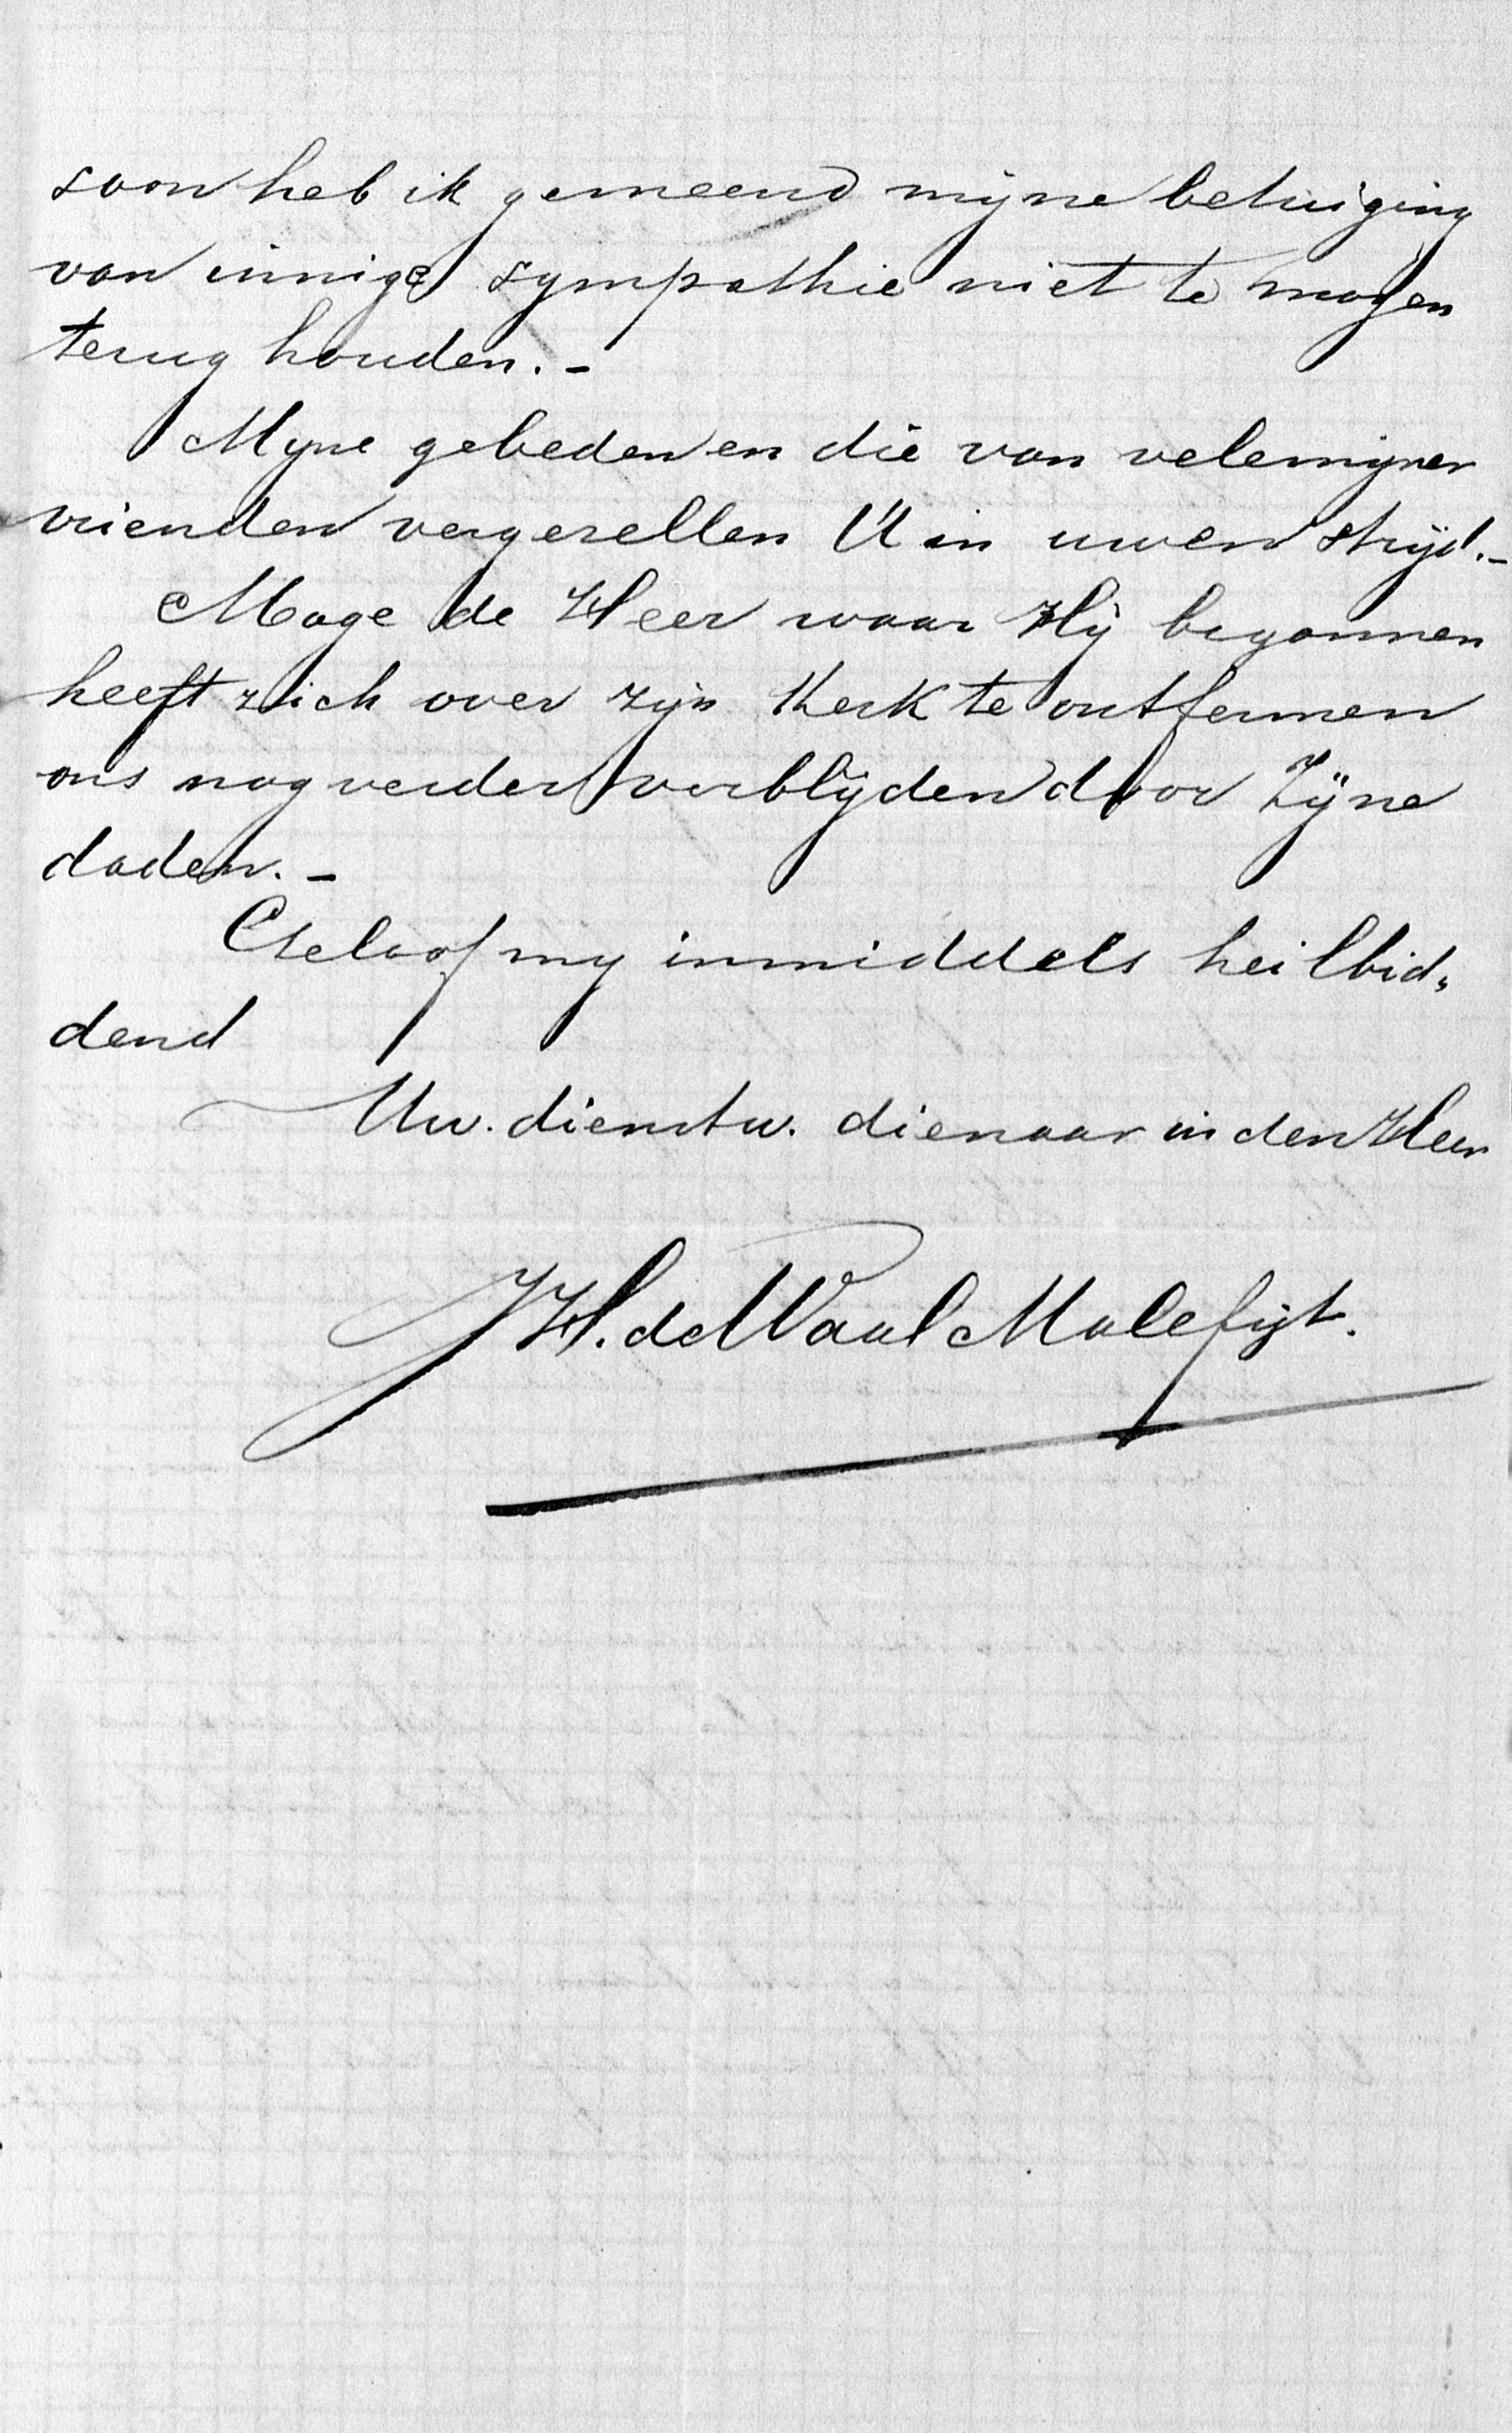 soon heb ik gemeend mijne betuiging
van innige sympathie niet te mogen
terug houden. -
Mijne gebeden en die van velemijner
vrienden vergezellen U in uwen strijd. -
Moge de Heer waar Hij begonnen
heeft zich over zijn Kerk te ontfermen
ons nog verder verblijden door Zijne
daden. -
Geloof my inmiddels heilbid„
dend
Uw. dienstw. dienaar in den Heer
JH. de Waal Malefijt.